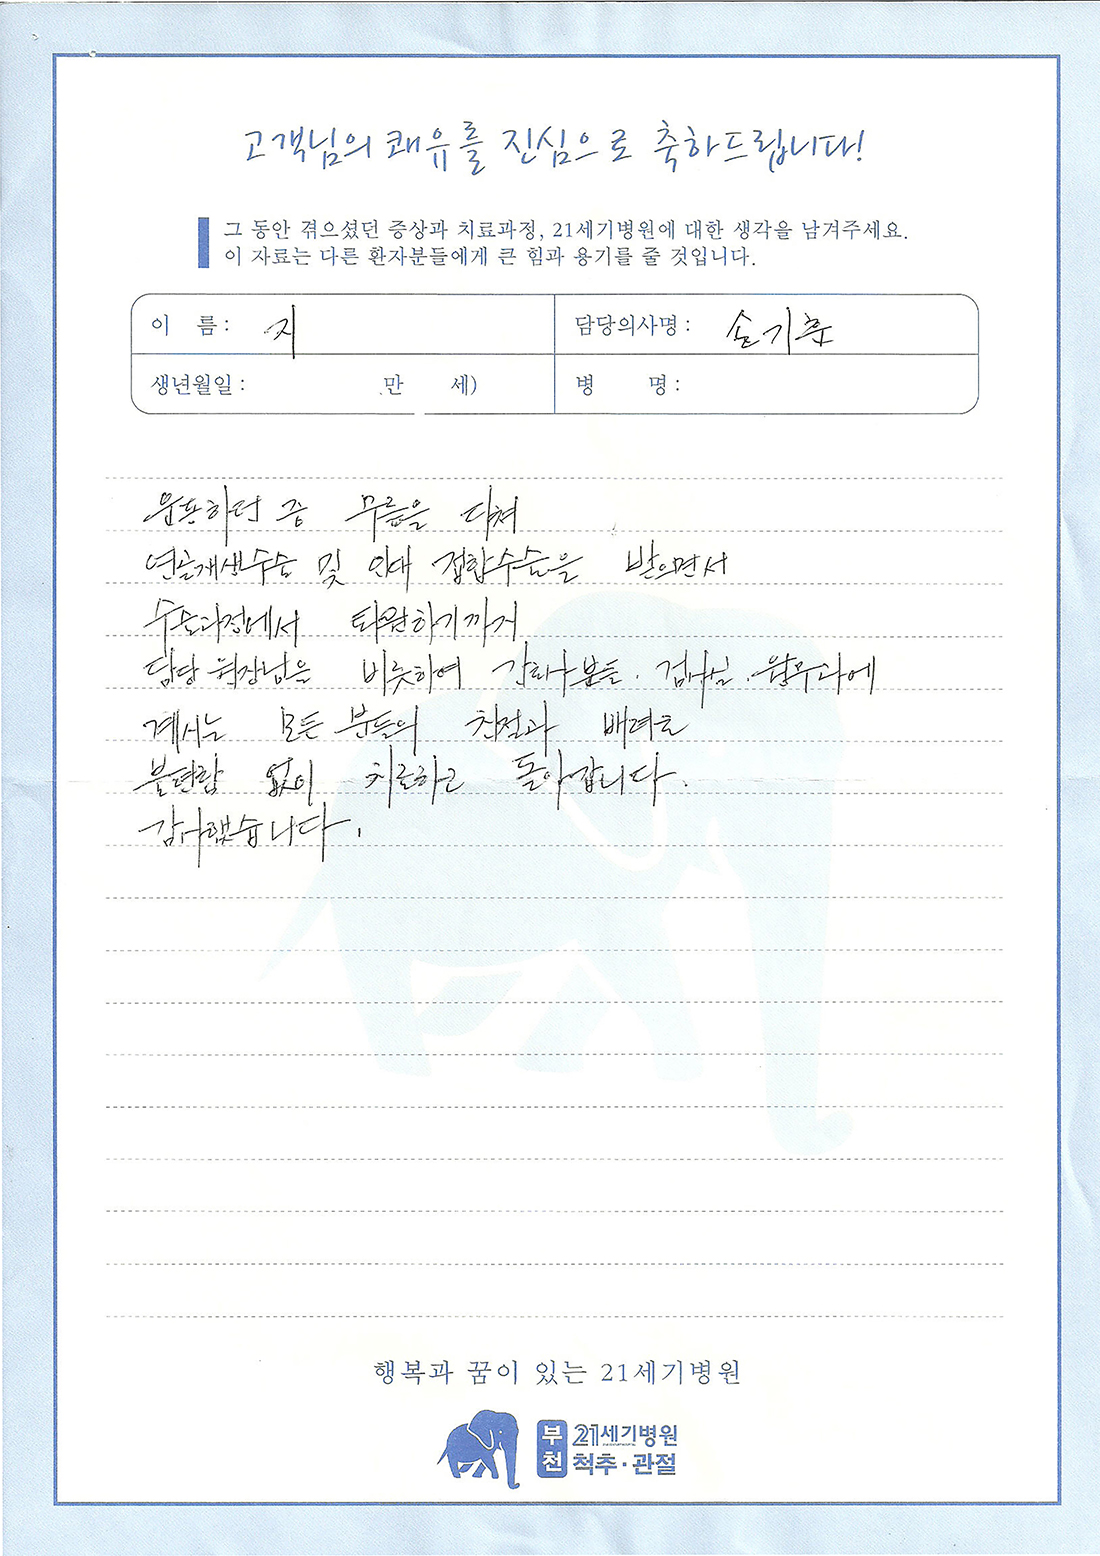 고객님의 쾌유를 진심으로 축하드립니다!
그 동안 겪으셨던 증상과 치료과정, 21세기병원에 대한 생각을 남겨주세요.
이 자료는 다른 환자분들에게 큰 힘과 용기를 줄 것입니다.
이 름 : 지 담당의사명 : 송기훈
생년월일 : 만 세) 병 명 :
운동하던 중 무릎을 다쳐
연골재생수술 및 인대 접합수술을 받으면서
수술과정에서 퇴원하기까지
담당 원장님을 비롯하여 간호사분들. 검사실. 원무과에
계시는 모든 분들의 친절과 배려로
불편함 없이 치료하고 돌아갑니다.
감사했습니다.
행복과 꿈이 있는 21세기병원
부천 21세기병원
척추·관절